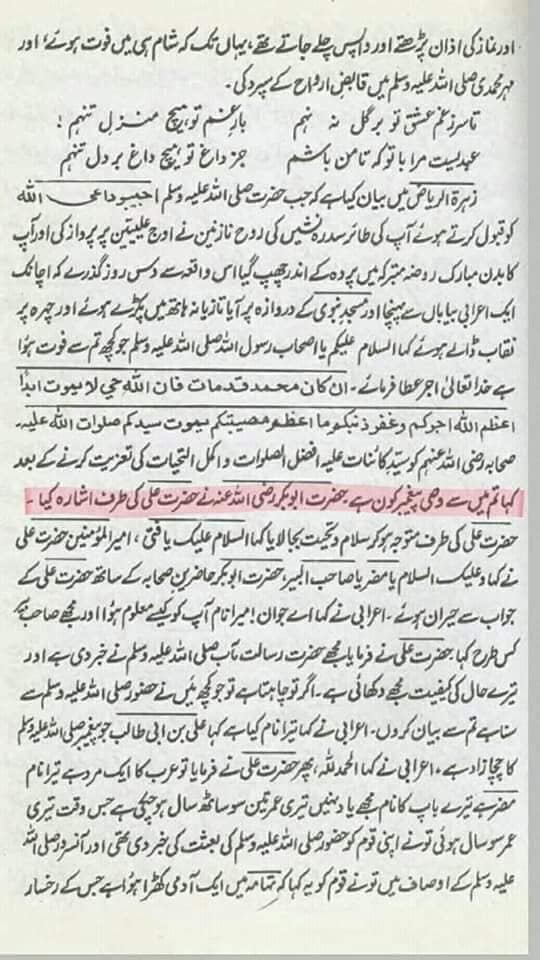 اور نماز کی اذان پڑھتے اور واپس چلے جاتے تھے، یہاں تک کہ شام ہی میں فوت ہوئے، اور
مہر محمدی صلی اللہ علیہ وسلم میں قابض ارواح کے سپرد کی۔
تا سر ز غم عشق تو بر گل نہ نہم بار غم تو بہیچ منزل ننہم!
عہدیست مرا با تو کہ تا من باشم جز داغ تو ہیچ داغ بر دل ننہم
زہرۃ الریاض میں بیان کیا ہے کہ جب حضرت صلی اللہ علیہ وسلم اجیبو داعی اللہ
کو قبول کرتے ہوئے آپ کی طائر سدرہ نشیں کی روح نازنین نے اوج علیین پر پرواز کی اور آپ
کا بدن مبارک روضہ متبرکہ میں پردہ کے اندر چھپ گیا اس واقعہ سے دس روز گذرے کہ اچانک
ایک اعرابی بیاباں سے پہنچا اور مسجد نبوی کے دروازہ پر آیا تازیانہ ہاتھ میں پکڑے ہوئے اور چہرہ پر
نقاب ڈالے ہوئے کہا السلام علیکم یا اصحاب رسول اللہ صلی اللہ علیہ وسلم جو کچھ تم سے فوت ہوا
ہے خدا تعالیٰ اجر عطا فرمائے۔ ان کان محمد قدمات فان اللہ حی لا یموت ابدًا
اعظم اللہ اجرکم وغفر ذنبکم ما اعظم مصیبتکم بموت سیدکم صلوات اللہ علیہ۔
صحابہ رضی اللہ عنہم کو سید کائنات علیہ افضل الصلوات و اکمل التحیات کی تعزیت کرنے کے بعد
کہا تم میں سے وصی پیغمبر کون ہے۔ حضرت ابوبکر رضی اللہ عنہ نے حضرت علی کی طرف اشارہ کیا۔
حضرت علی کی طرف متوجہ ہو کر سلام و تحیت بجا لایا کہا السلام علیک یا فتیٰ، امیر المؤمنین حضرت علی
نے کہا وعلیک السلام یا مضر یا صاحب البیر، حضرت ابوبکر حاضرین صحابہ کے ساتھ حضرت علی کے
جواب سے حیران ہوئے۔ اعرابی نے کہا اے جوان! میرا نام آپ کو کیسے معلوم ہوا اور مجھے صاحب بیر
کس طرح کہا۔ حضرت علی نے فرمایا مجھے حضرت رسالت مآب صلی اللہ علیہ وسلم نے خبر دی ہے اور
تیرے حال کی کیفیت مجھے دکھائی ہے۔ اگر تو چاہتا ہے تو جو کچھ میں نے حضور صلی اللہ علیہ وسلم سے
سنا ہے تم سے بیان کروں۔ اعرابی نے کہا تیرا نام کیا ہے کہا علی بن ابی طالب جو پیغمبر صلی اللہ علیہ وسلم
کا چچا زاد ہے۔ اعرابی نے کہا الحمد للہ، پھر حضرت علی نے فرمایا تو عرب کا ایک مرد ہے تیرا نام
مضر ہے تیرے باپ کا نام مجھے یاد نہیں تیری عمر تین سو ساٹھ سال ہو چکی ہے جس وقت تیری
عمر سو سال ہوئی تو نے اپنی قوم کو حضور صلی اللہ علیہ وسلم کی بعثت کی خبر دی تھی اور آنسرور صلی اللہ
علیہ وسلم کے اوصاف میں تو نے قوم کو یہ کہا کہ تہامہ میں ایک آدمی کھڑا ہوا ہے جس کے رخسار